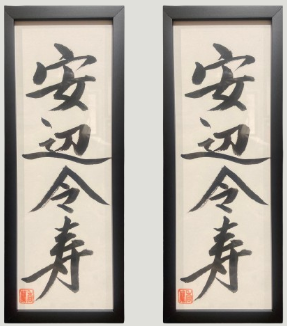 安辺令寿
安辺令寿